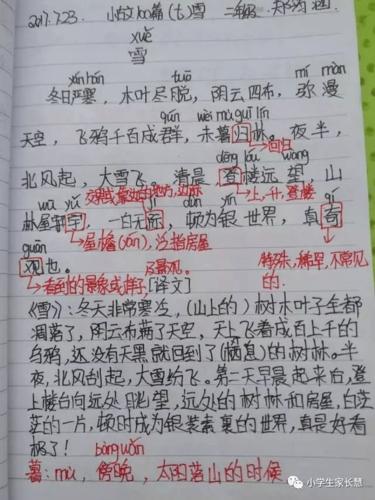 2017.7.23. 小古文100篇(七)雪 二年级
xuě
雪
yán hán tuō mí màn
冬日严寒,木叶尽脱,阴云四布,弥漫
guī lín
天空,飞鸦千百成群,未暮归林。夜半,
→回归
dēng lóu wàng
北风起,大雪飞。清晨,登楼远望,山
→上,升,登楼
wū yǔ yín qí
林屋宇,一白无际,顿为银世界,真奇
→屋檐(yán),当指房屋
guān
观也。
→景观。
特殊,稀罕,不常见的.
→看到的景象或样子.[译文]
《雪》:冬天非常寒冷,(山上的)树木叶子全都
凋落了,阴云布满了天空,天上飞着成百上千的
乌鸦,还没有天黑就回到了(栖息)的树林。半
夜,北风刮起,大雪纷飞。第二天早晨起来后,登
上楼台向远处眺望,远处的树林和房屋,白茫
茫的一片,顿时成为银装素裹的世界,真是好看
极了!
bàng wǎn
暮:mù,傍晚,太阳落山的时候
小学生家长慧